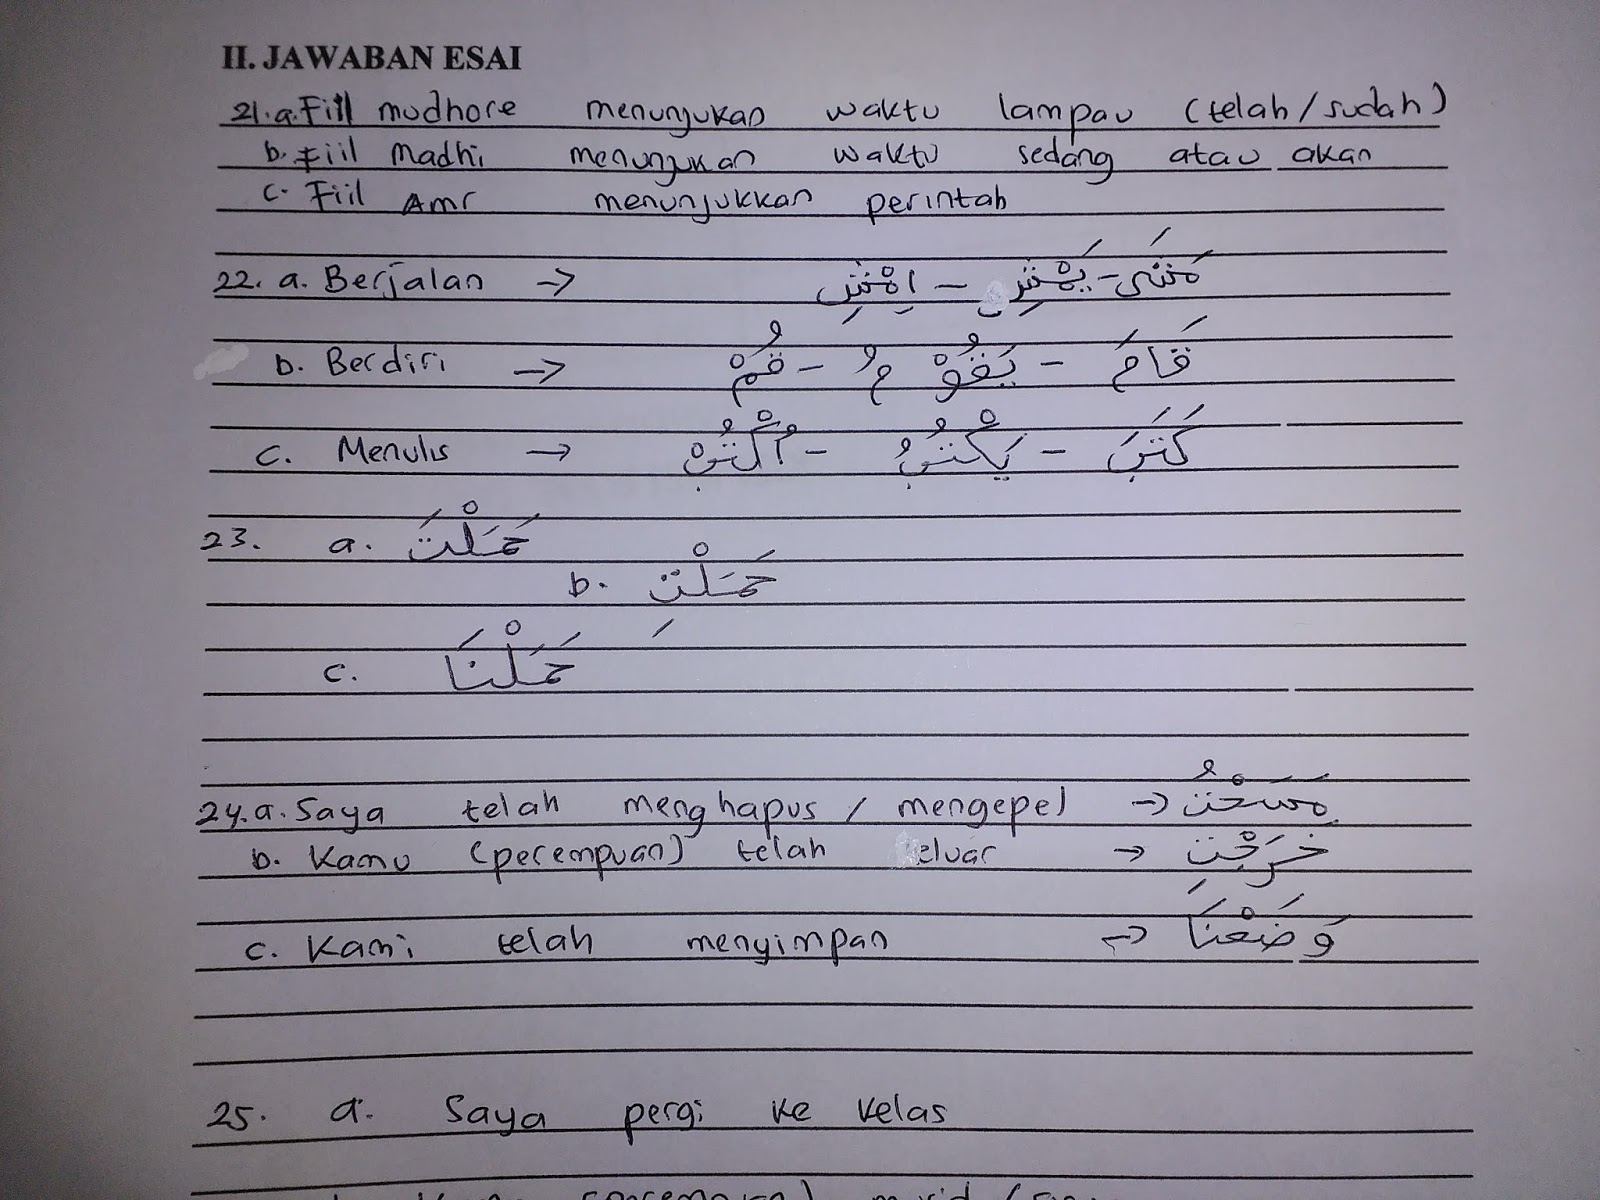 II. JAWABAN ESAI
21. a. Fiil mudhore menunjukan waktu lampau (telah/sudah)
b. Fiil Madhi menunjukan waktu sedang atau akan
c. Fiil Amr menunjukkan perintah
22. a. Berjalan → مَشَى - يَمْشِ - اِمْشِ
b. Berdiri → قَامَ - يَقُوْمُ - قُمْ
c. Menulis → كَتَبَ - يَكْتُبُ - اُكْتُبْ
23. a. حَمَلْتَ
b. حَمَلْتِ
c. حَمَلْنَا
24. a. Saya telah menghapus / mengepel → مَسَحْتُ
b. Kamu (perempuan) telah keluar → خَرَجْتِ
c. Kami telah menyimpan → وَضَعْنَا
25. a. Saya pergi ke kelas